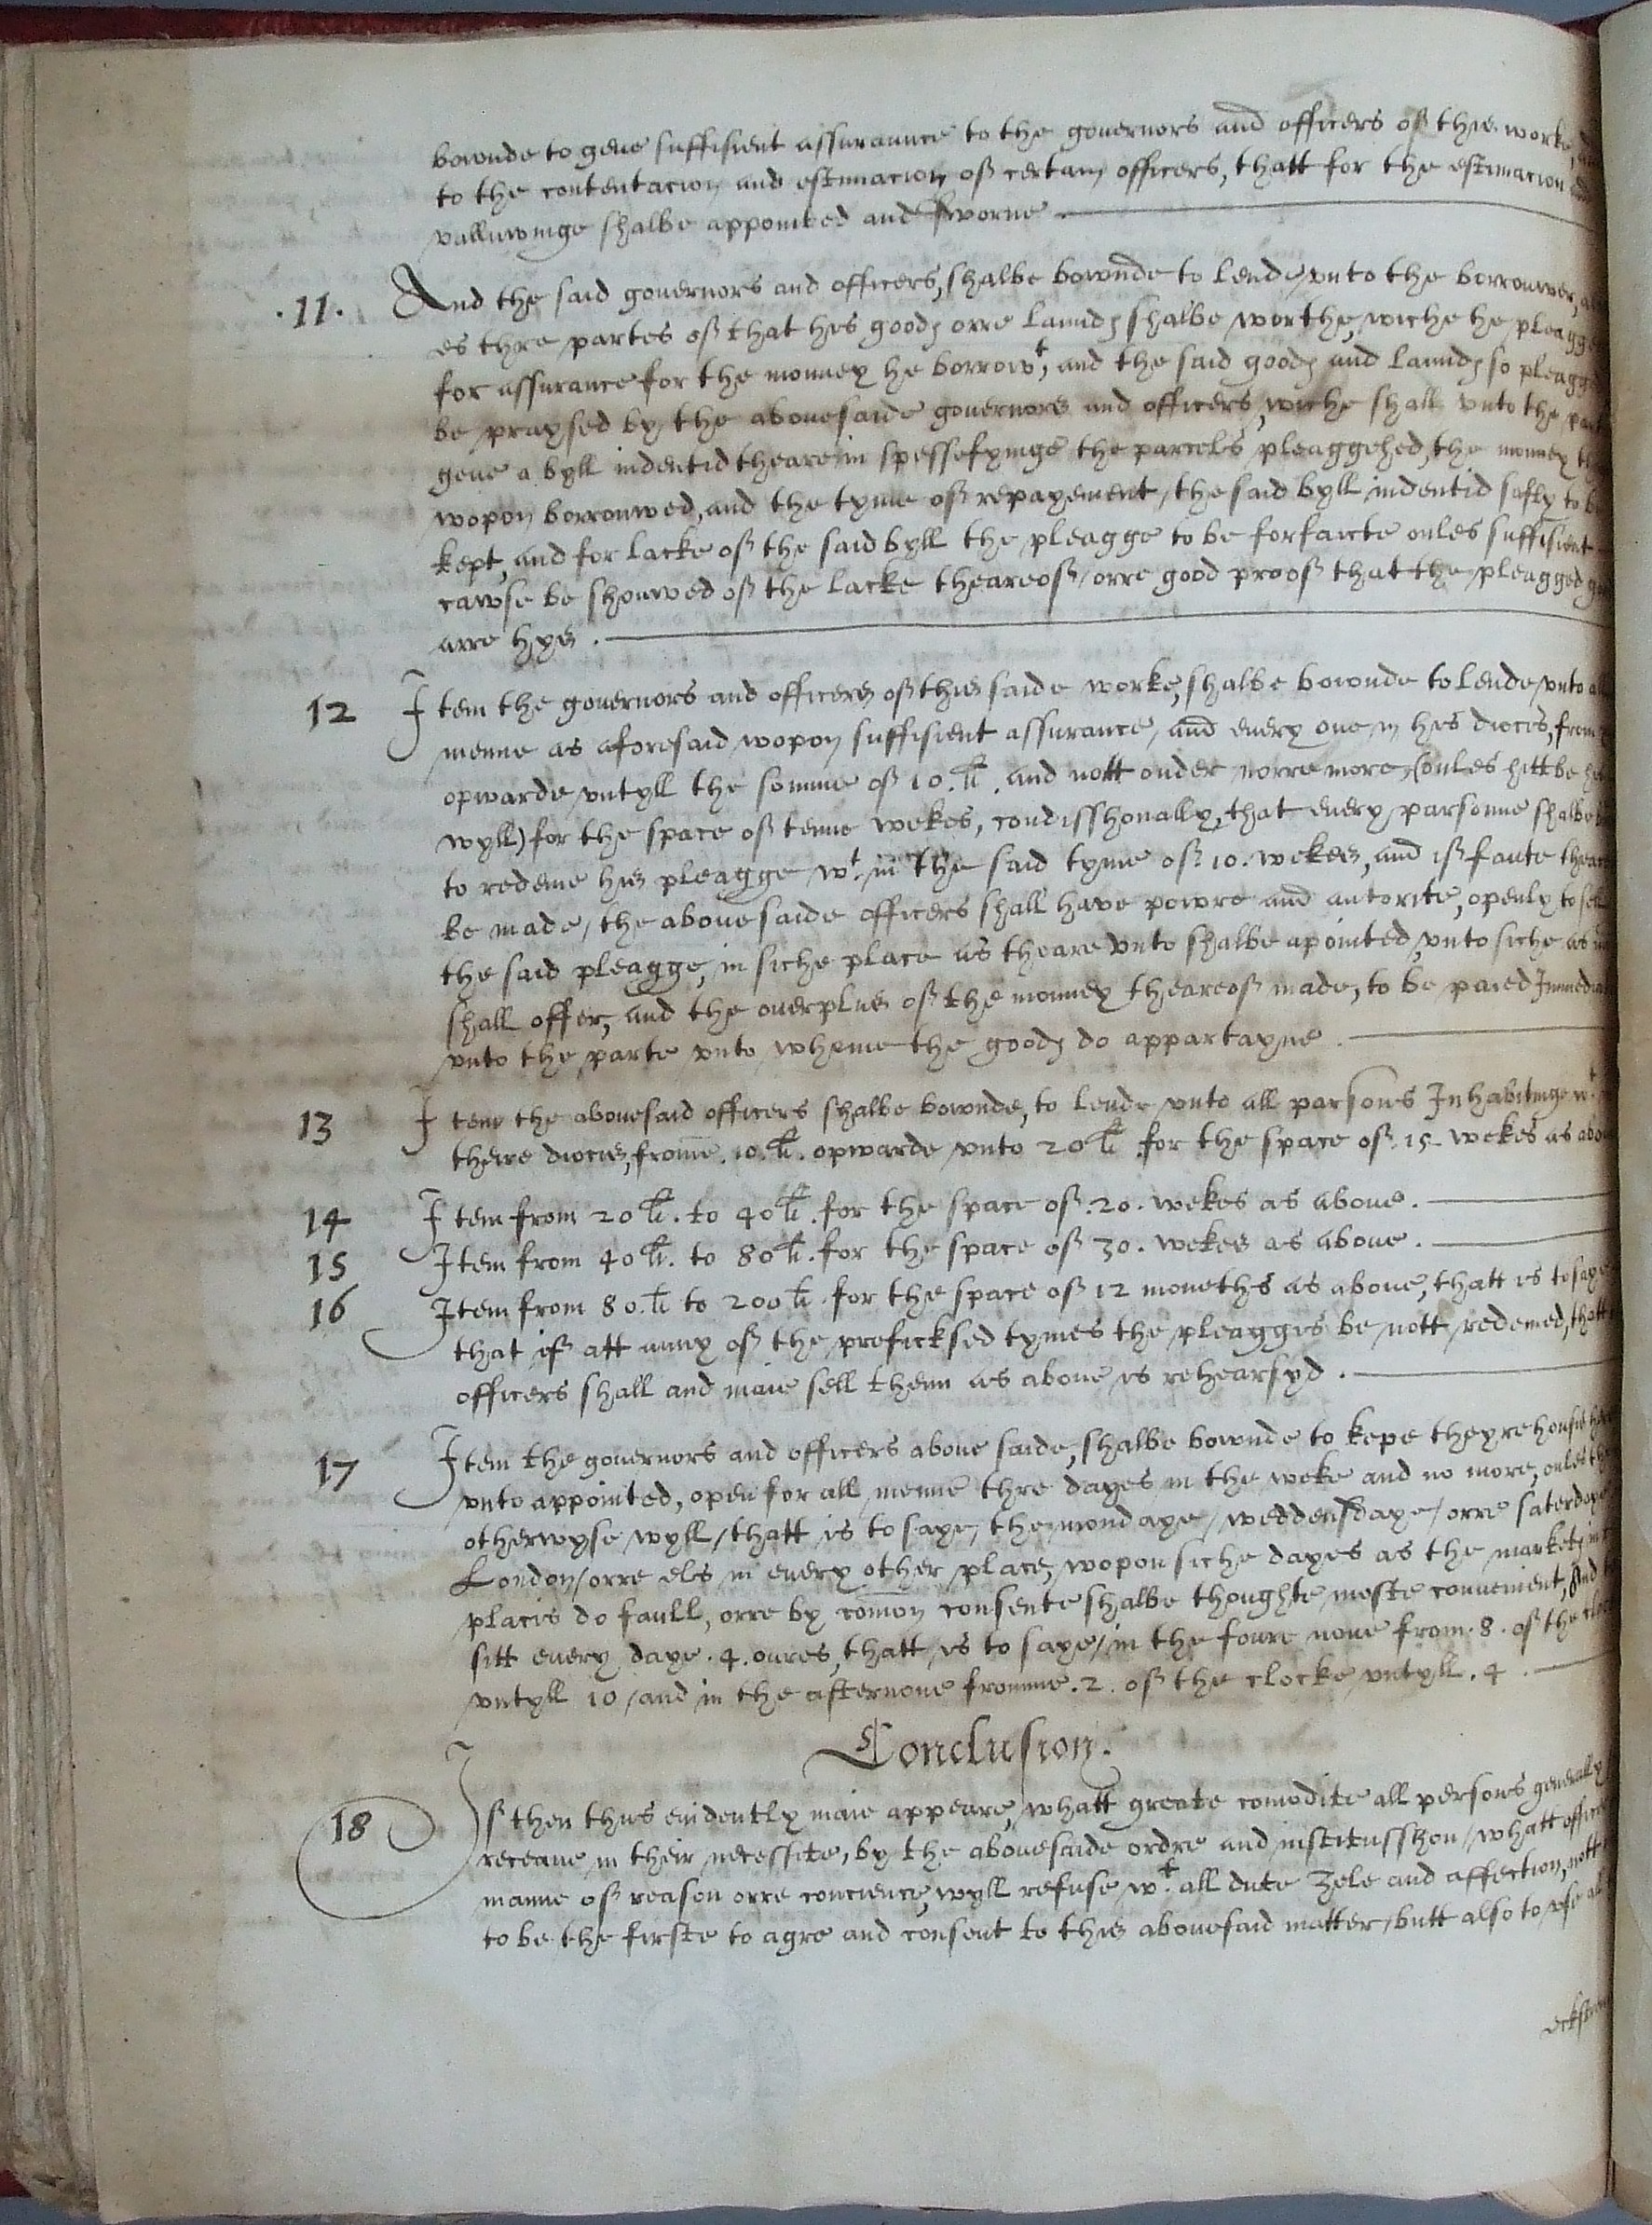 bownde to geue suffisient assuraunce to the gouernors and officers off this worke,
to the contentacion and estimacion off certain officers, thatt for the estimacion
valluwinge shalbe appointed and sworne
.11. And the said gouernors and officers, shalbe bownde to lend vnto the borrouwer,
es thre partes off that his goodes orre lanndes shalbe worthe, wiche he pleagge
for assurance for the monney he borrowt, and the said goodes and lanndes so pleagg
be praysed by the abouesaide gouernors and officers, wiche shall vnto the
geue a byll indentid theare in spessefyinge the parcels pleaggehed, the monney
wopon borrouwed, and the tyme off repayement, the said byll indentid safly to
kept, and for lacke off the said byll the pleagge to be forfaicte onles suffisient
cawse be shouwed off the lacke theareoff, orre good prooff that the pleagged
arre hys.
12 Item the gouernors and officers off this saide worke, shalbe bownde to lende vnto
menne as aforesaid wopon suffisient assurance, and euery one in his diocis, from
opwarde vntyll the somme off 10. li. and nott onder norre more, (onles hitt be
wyll) for the space off tenne wekes, condisshonally, that euery parsonne shalbe
to redeme his pleagge wt. in the said tyme off 10. wekes, and iff faute
be made, the abouesaide officers shall have powre and autorite, openly to sell
the said pleagge, in siche place as theare vnto shalbe apointed, vnto siche as
shall offer, and the ouerplus off the monney theareoff made, to be paied
vnto the parte vnto whome the goodes do appartayne.
13 Item the abouesaid officers shalbe bownde, to lende vnto all parsons Inhabitinge wt
theire diocis, frome .10. li. opwarde vnto 20 li. for the space off 15. wekes as
14 Item from 20 li. to 40 li. for the space off .20. wekes as aboue.
15 Item from 40 li. to 80 li. for the space off 30. wekes as aboue.
16 Item from 80. li to 200 li. for the space off 12 moneths as aboue, thatt is to saye
that iff att anny off the preficksed tymes the pleagges be nott redemed,
officers shall and maie sell them as aboue is rehearsyd.
17 Item the gouernors and officers aboue saide, shalbe bownde to kepe theyre
vnto appointed, open for all menne thre dayes in the weke and no more, onles
otherwyse wyll, thatt is to saye, the mondaye, weddensdaye, orre saterdaye
London, orre els in euery other place, wopon siche dayes as the markets
placis do faull, orre by comon consente shalbe thoughte moste conuenient, And
sitt euery daye .4. oures, thatt is to saye, in the foure none from .8. off the
vntyll 10, and in the afternone fromme .2. off the clocke vntyll .4.
Conclusion.
18 If then this euidently maie appeare, whatt greate comodite all persons generally
receaue in their necessite, by the abouesaide ordre and institusshon, whatt
manne off reason orre concience, wyll refuse wt. all dute zele and affection, nott
to be the firste to agre and consent to this abouesaid matter, butt also to vse